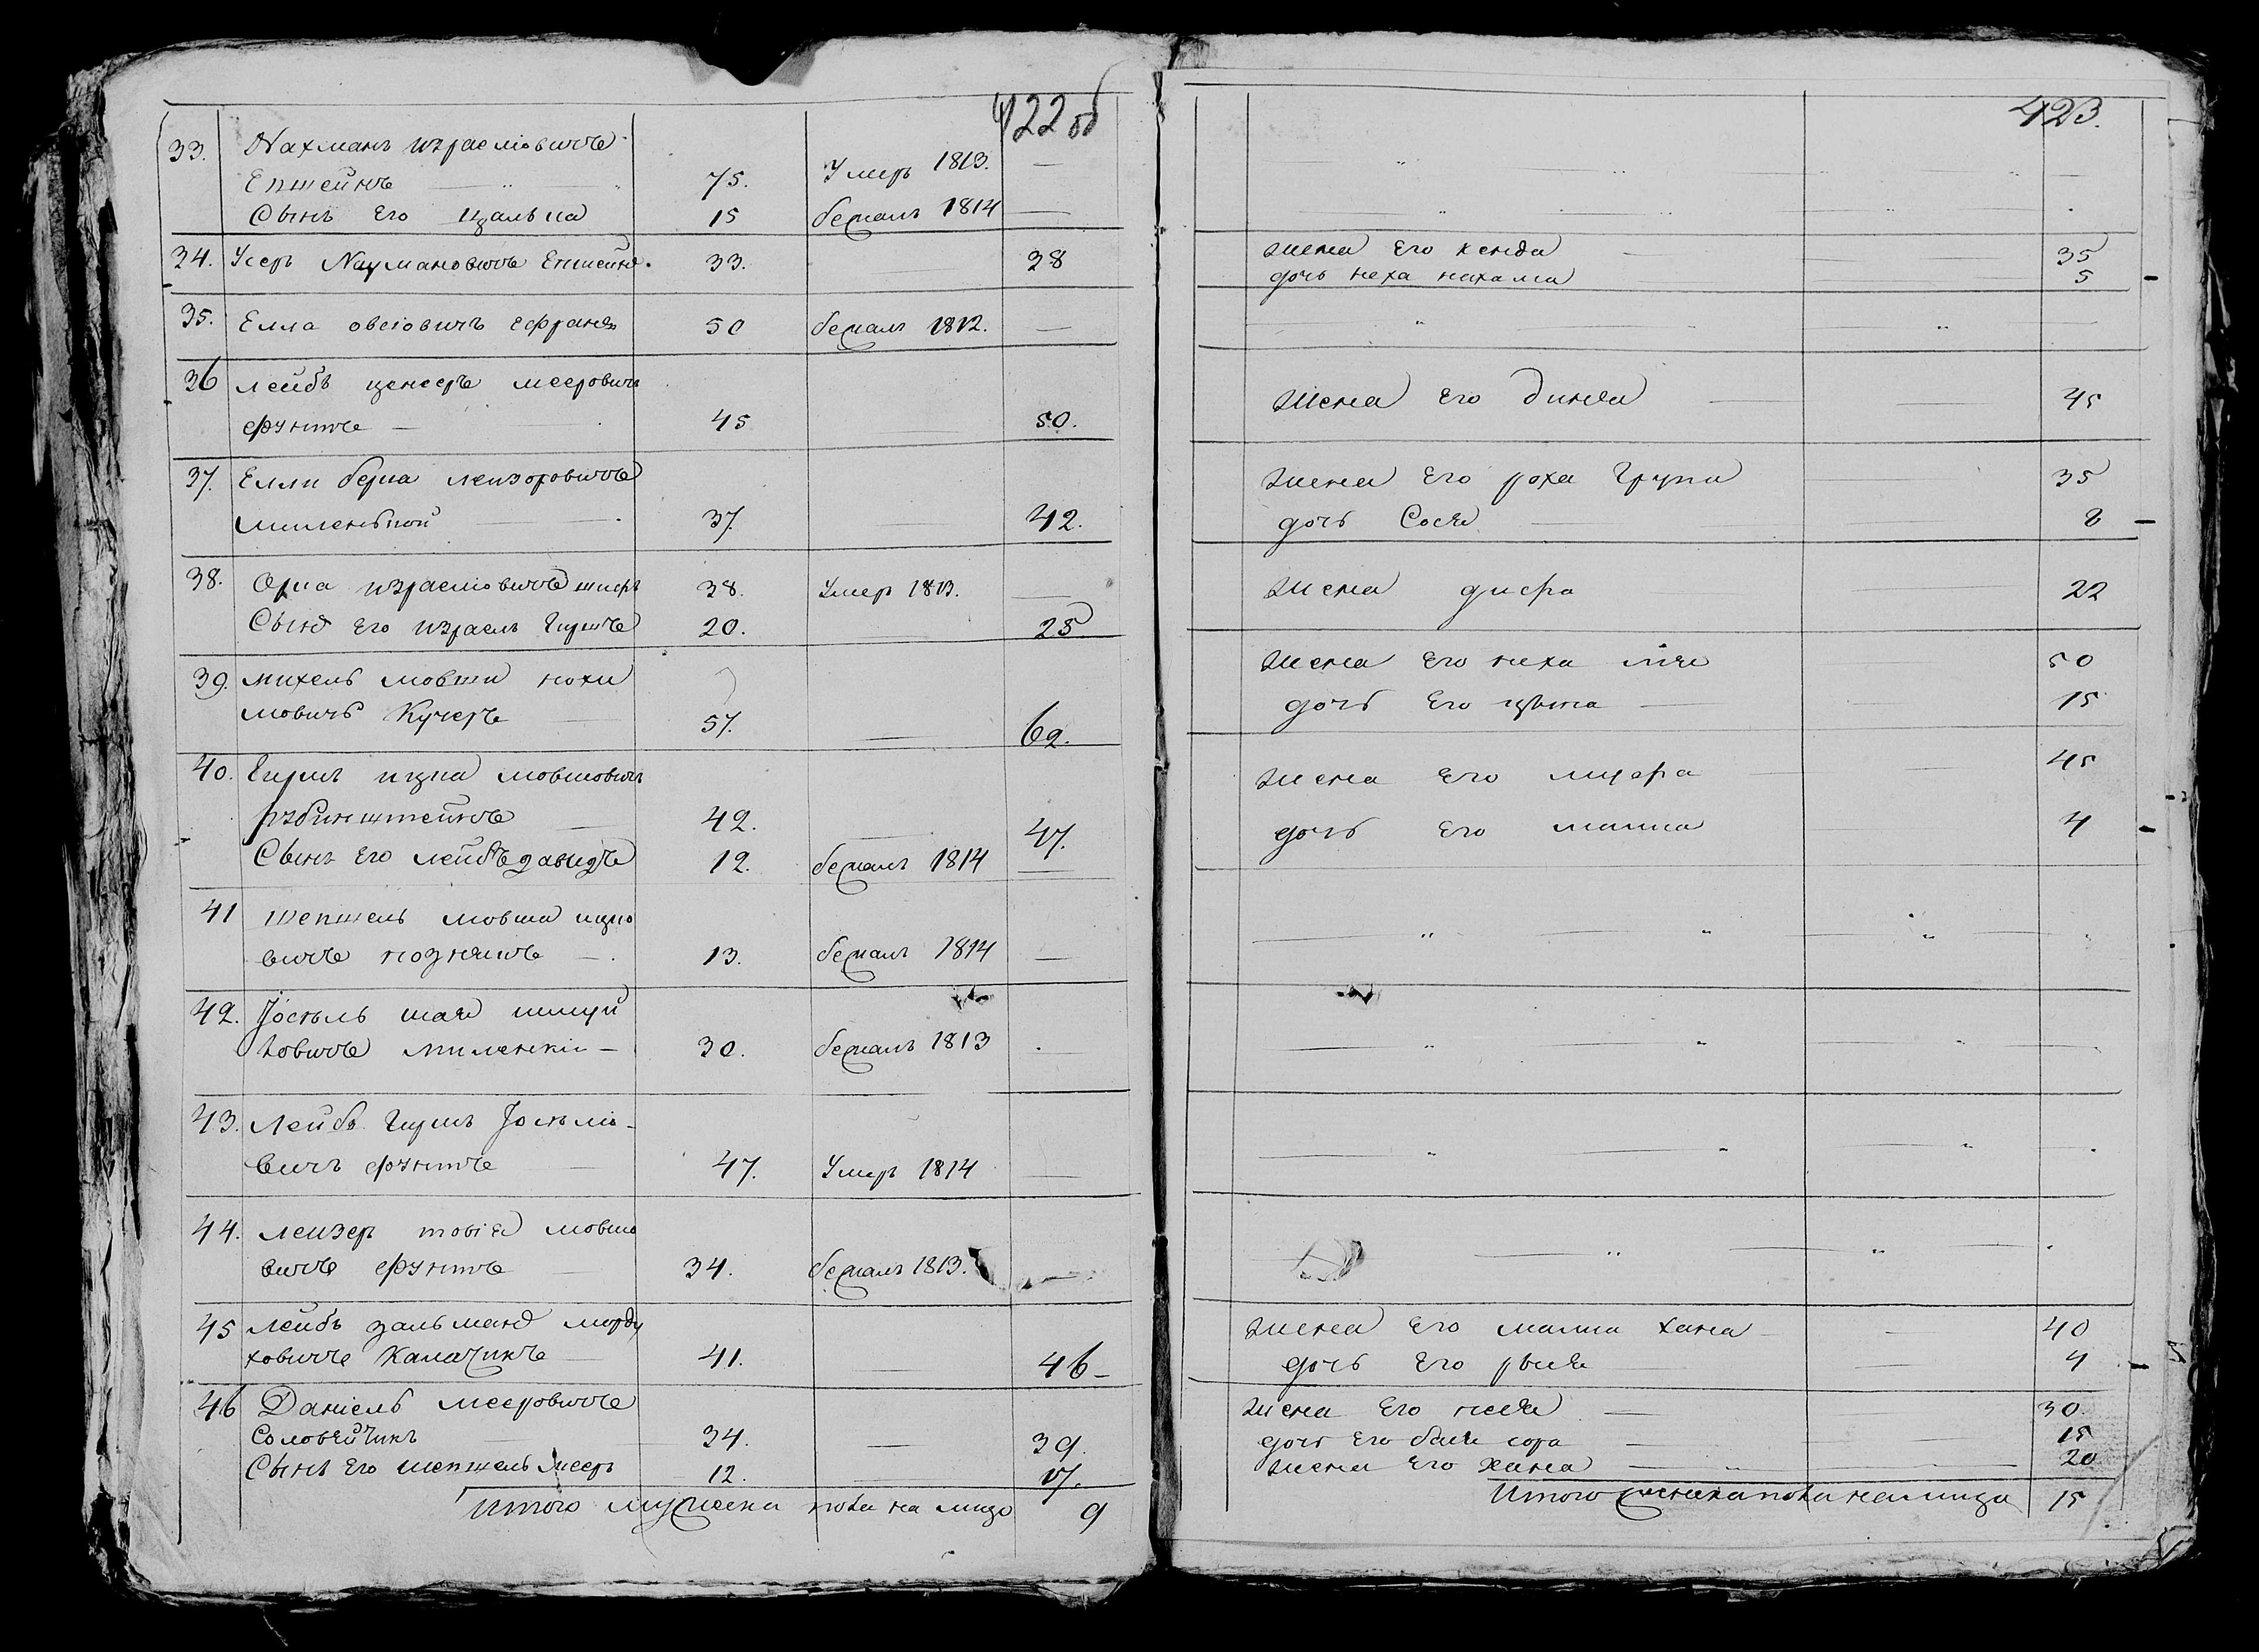 422 об
33. Нахманъ Израелiовичъ
Епшейнъ 75. Умеръ 1813. —
Сынъ Его Ицалька 15 бежалъ 1814 —
34. Усеръ Наумановичъ Епшейнъ 33. 38
35. Елла овсiовичъ 50 бежалъ 1812. —
36 лейбъ мееровичъ
фунтъ — 45 50.
37. Елли берка лейзоровичъ
миленькой 37. 42.
38. Орка израелiовичъ 38. Умеръ 1813. —
Сынъ Его израель Гиршъ 20. 25
39. михель мовша нохи
мовичъ Кучеръ 57. 62.
40. Гиршъ ицка мовшовичъ
рубинштейнъ 42. 47.
Сынъ Его лейбъ давидъ 12. бежалъ 1814 —
41 шепшель мовша ицко
вичъ познякъ — 13. бежалъ 1814 —
42. Iосель шая
ховичъ миленкiи — 30. бежалъ 1813
43. Лейба Гиршъ Iосельiо-
вичъ фунтъ 47. Умеръ 1814 —
44. лейзеръ товiя мовшо
вичъ фунтъ 34. бежалъ 1813. —
45 лейбъ зальманъ морду
ховичъ Калачикъ 41. — 46-
46 Данiель мееровичъ
Соловейчикъ 34. — 39.
Сынъ Его шепшель мееръ 12. 17.
Итого мужеска пола на лицо 9
423.
жена Его Кенда 35
дочь неха нихама 5
жена Его динья 45
жена Его роха Група 35
дочь Сося 8
жена двера 22
жена Его неха лiя 50
дочь Его цывка 15
жена Его 45
дочь Его малка 4
жена Его малка хана 40
дочь Его рыся 4
жена Его песя 30.
дочь Его бася сора 15
жена Его хана 20
Итого женска пола налицо 15